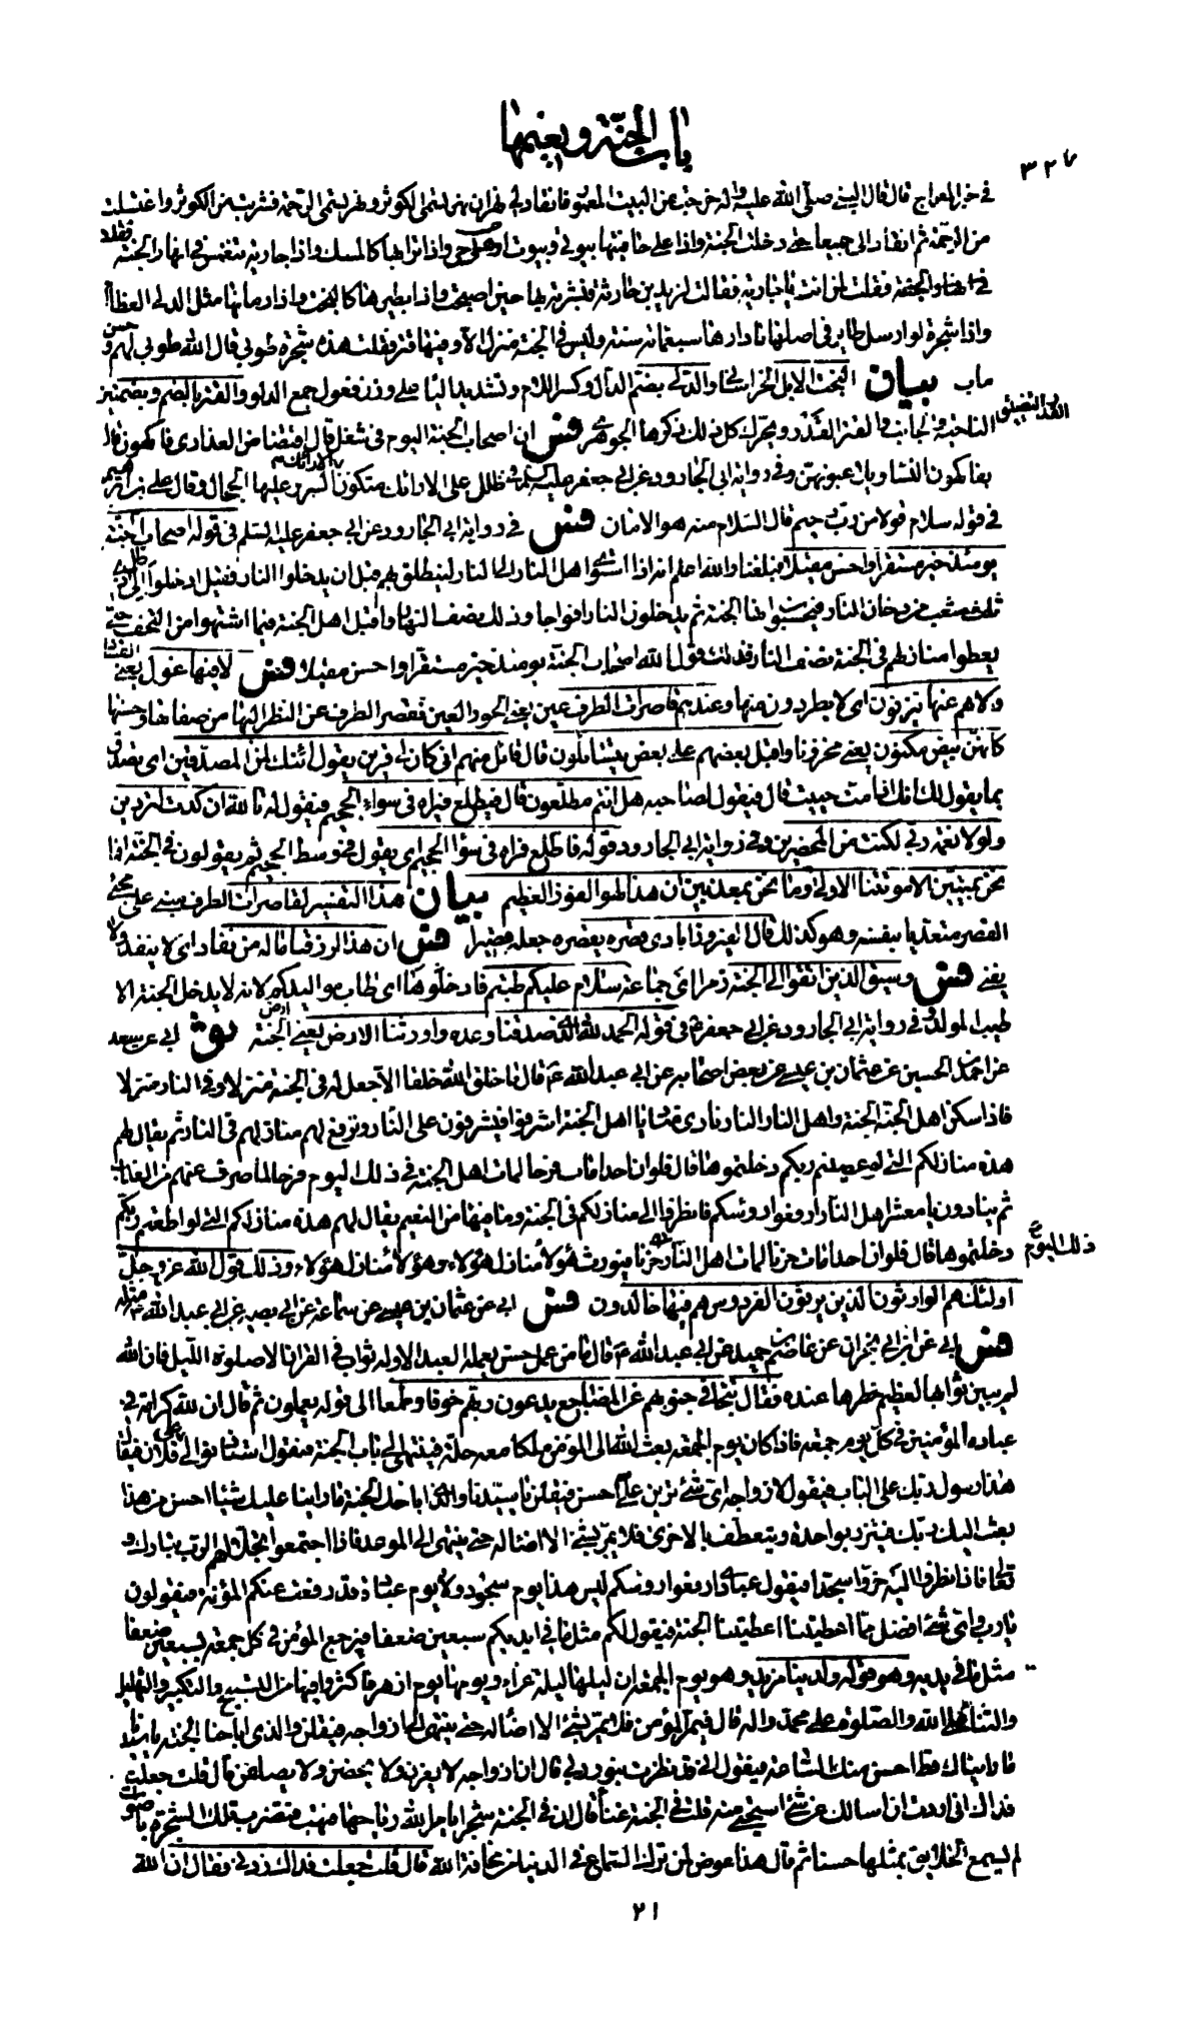 باب الجنة ونعيمها
٣٢٧
في خبر المعراج قال قال النبي صلى الله عليه وآله خرجت من البيت المعمور فانقاد لي نهران نهر يسمى الكوثر ونهر يسمى الرحمة فشربت من الكوثر واغتسلت
من الرحمة ثم انقادا لي جميعا حتى دخلت الجنة واذا على حافتيها بيوتي وبيوت ازواجي واذا ترابها كالمسك واذا جارية تنغمس في انهار الجنة
فقلت لمن انت يا جارية فقالت لزيد بن حارثة فبشرته بها حين اصبحت واذا بطيرها كالبخت واذا رمانها مثل الدلي العظام
واذا شجرة لو ارسل طاير في اصلها ما دارها سبعمائة سنة وليس في الجنة منزل الا وفيها قتر منها فقلت هذه شجرة طوبى قال الله طوبى لهم وحسن
ماب بيان البخت الابل الخراساني والدلي بضم الدال وكسر اللام وتشديد الياء على وزن فعول جمع الدلو والقتر بالضم وبضمتين
الناحية والجانب والقتر القدر ويحرك كل ذلك ذكرها الجوهري فس ان اصحاب الجنة اليوم في شغل قال افتضاض العذارى فاكهون قال
يفاكهون النساء ويلاعبونهن وفي رواية ابي الجارود عن ابي جعفر عليه السلام في ظلل على الارائك متكئون السرير عليها الحجال وقال علي بن ابراهيم
في قوله سلام قولا من رب رحيم قال السلام منه هو الامان فس في رواية ابي الجارود عن ابي جعفر عليه السلم في قوله اصحاب الجنة
يومئذ خير مستقرا واحسن مقيلا فبلغنا والله اعلم انه اذا استوى اهل النار الى النار لينطلق بهم قبل ان يدخلوا النار فقيل ادخلوا الى ظل ذي
ثلث شعب من دخان النار فيحسبون انها الجنة ثم يدخلون النار افواجا وذلك نصف النهار واقبل اهل الجنة فيما اشتهوا من التحف حتى
يعطوا منازلهم في الجنة نصف النار فذلك قول الله اصحاب الجنة يومئذ خير مستقرا واحسن مقيلا فس لا فيها غول يعني الفساد
ولا هم عنها ينزفون اى لا يطردون منها وعندهم قاصرات الطرف عين يعني الحور العين تقصر الطرف عن النظر اليها من صفائها وحسنها
كانهن بيض مكنون يعني مخزون واقبل بعضهم على بعض يتسائلون قال قائل منهم اني كان لي قرين يقول ائنك لمن المصدقين اى تصدق
بما يقول لك انك اذا مت حييت قال فيقول لصاحبه هل انتم مطلعون قال فيطلع فيراه في سواء الجحيم فيقول له تالله ان كدت لتردين
ولولا نعمة ربي لكنت من المحضرين وفي رواية ابي الجارود قوله فاطلع فراه في سواء الجحيم اى يقول في وسط الجحيم ثم يقولون في الجنة افما
نحن بميتين الا موتتنا الاولى وما نحن بمعذبين ان هذا لهو الفوز العظيم بيان هذا التفسير لقاصرات الطرف مبني على مجيء
القصر متعديا بنفسه وهو كذلك قال الفيروزابادي قصره يقصره جعله قصيرا فس ان هذا لرزقنا ماله من نفاد اى لا ينفد ولا
يفنى فس وسيق الذين اتقوا الى الجنة زمرا اى جماعة سلام عليكم طبتم فادخلوها اى طاب مواليدكم لانه لا يدخل الجنة الا
طيب المولد في رواية ابي الجارود عن ابي جعفر في قوله الحمد لله الذي صدقنا وعده واورثنا الارض يعني ارض الجنة ثو ابي عن سعد
عن احمد عن الحسين عن عثمان بن عيسى عن بعض اصحابه عن ابي عبد الله ع قال ما خلق الله خلقا الا جعل له في الجنة منزلا وفي النار منزلا
فاذا سكن اهل الجنة الجنة واهل النار النار نادى مناد يا اهل الجنة اشرفوا فيشرفون على النار وترفع لهم منازلهم في النار ثم يقال لهم
هذه منازلكم التي لو عصيتم ربكم دخلتموها قال فلو ان احدا مات فرحا لمات اهل الجنة في ذلك اليوم فرحا لما صرف عنهم من العذاب
ثم ينادون يا معشر اهل النار ارفعوا رؤسكم فانظروا الى منازلكم في الجنة وما فيها من النعيم يقال لهم هذه منازلكم التي لو اطعتم ربكم
دخلتموها قال فلو ان احدا مات حزنا لمات اهل النار حزنا فيورث هؤلاء منازل هؤلاء وهؤلاء منازل هؤلاء وذلك قول الله عز وجل
ذلك اليوم
اولئك هم الوارثون الذين يرثون الفردوس هم فيها خالدون فس ابي عن عثمان بن عيسى عن سماعة عن ابي بصير عن ابي عبد الله ع مثله
فس ابي عن ابن ابي نجران عن عاصم بن حميد عن ابي عبد الله ع قال ما من عمل حسن يعمله العبد الا وله ثواب في القرآن الا صلوة الليل فان الله
لم يبين ثوابها لعظيم خطرها عنده فقال تتجافى جنوبهم عن المضاجع يدعون ربهم خوفا وطمعا الى قوله يعملون ثم قال ان لله كرامة في
عباده المؤمنين في كل يوم جمعة فاذا كان يوم الجمعة بعث الله الى المؤمن ملكا معه حلة فينتهي الى باب الجنة فيقول استأذنوا لي على فلان فيقال
هذا رسول ربك على الباب فيقول لازواجه اى شئ ترين علي احسن فيقلن يا سيدنا والذي اباحك الجنة ما راينا عليك شيئا احسن من هذا
بعث اليك ربك فيتزر بواحدة ويتعطف بالاخرى فلا يمر بشئ الا اضاء له حتى ينتهي الى الموعد فاذا اجتمعوا تجلى لهم الرب تبارك و
تعالى فاذا نظروا اليه خروا سجدا فيقول عبادي ارفعوا رؤسكم ليس هذا يوم سجود ولا يوم عبادة قد رفعت عنكم المؤنة فيقولون
يا رب واى شئ افضل مما اعطيتنا اعطيتنا الجنة فيقول لكم مثل ما في ايديكم سبعين ضعفا فيرجع المؤمن في كل جمعة بسبعين ضعفا
مثل ما في يديه وهو قوله ولدينا مزيد وهو يوم الجمعة ان ليلها ليلة غراء ويومها يوم ازهر فاكثروا فيها من التسبيح والتكبير والتهليل
والثناء على الله والصلوة على محمد واله قال فيمر المؤمن فلا يمر بشئ الا اضاء له حتى ينتهي الى ازواجه فيقلن والذي اباحنا الجنة يا سيدنا
ما رايناك قط احسن منك الساعة فيقول اني قد نظرت بنور ربي قال ان ازواجه لا يغرن ولا يحضن ولا يصلفن قال قلت جعلت
فداك اني اردت ان اسالك عن شئ استحيي منه قلت في الجنة غناء قال ان في الجنة شجرا يامر الله رياحها فتهب فتضرب تلك الشجرة باصوات
لم يسمع الخلايق بمثلها حسنا ثم قال هذا عوض لمن ترك السماع في الدنيا من مخافة الله قال قلت جعلت فداك زدني فقال ان الله
٢١